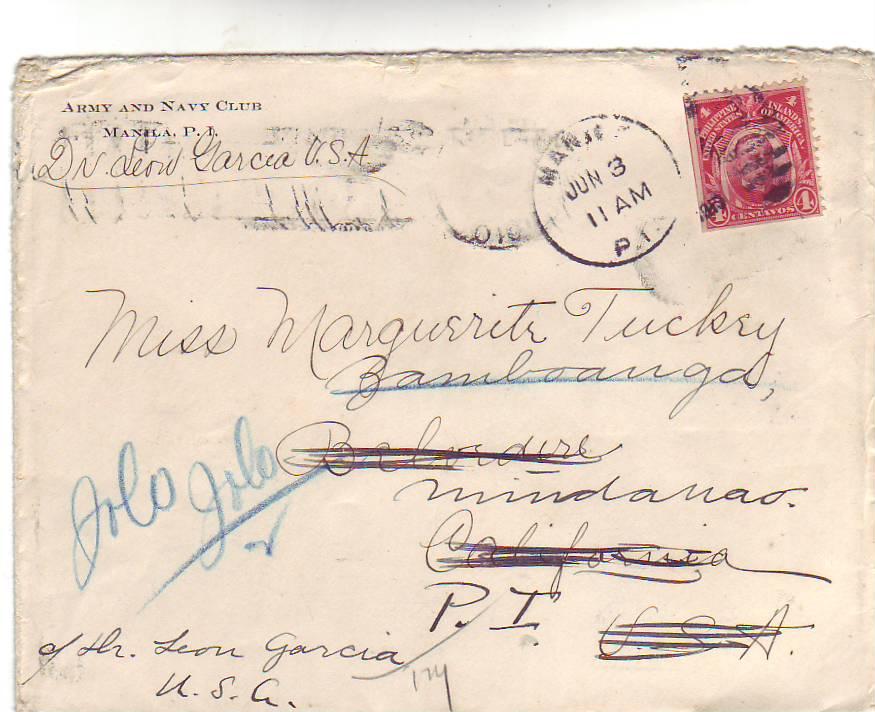 ARMY AND NAVY CLUB
MANILA, P. I.
Dr. Leon Garcia U.S.A
MANILA
JUN 3
11 AM
P.I.
4 4
PHILIPPINE ISLANDS
UNITED STATES OF AMERICA
4 CENTAVOS 4
Miss Marguerite Tuckey
Zamboanga,
Belvedire
Mindanao.
California
P. I.
U.S.A.
Jolo Jolo
c/o Dr. Leon Garcia
U. S. A.